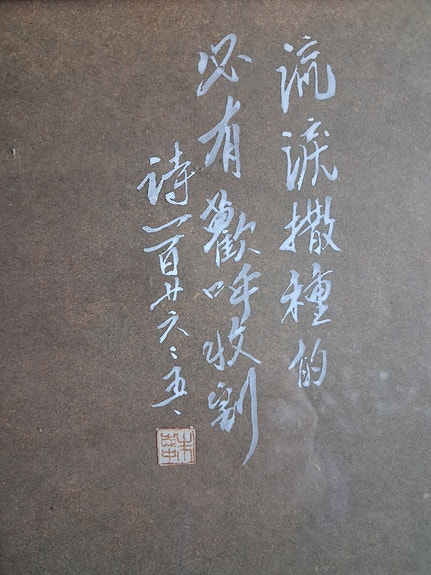 流淚撒種的
必有歡呼收割
詩一百廿六:五、